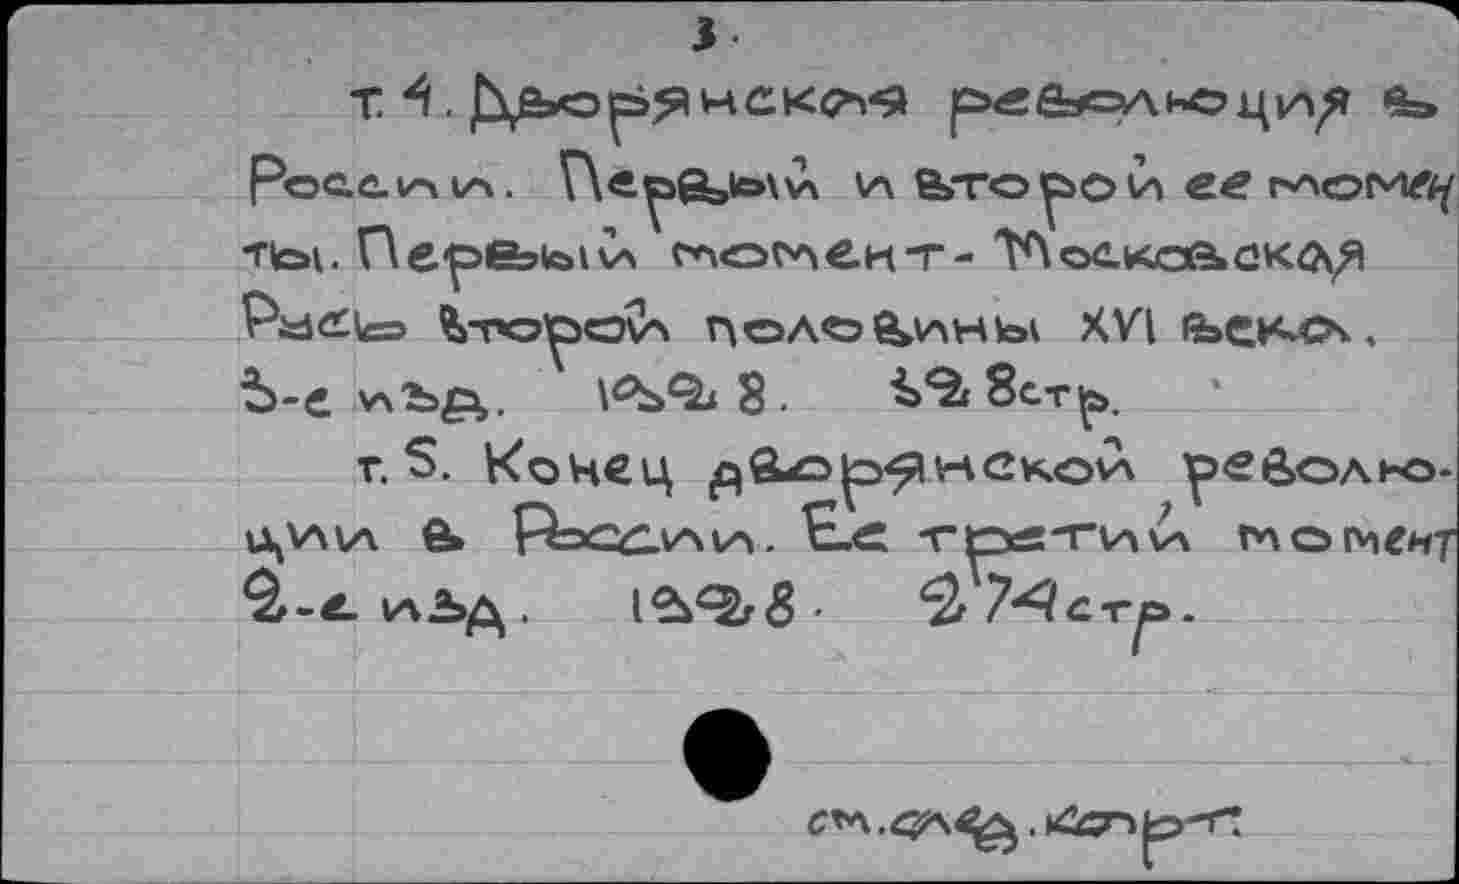 3.
т. 4. Дворянская революция в
России. Первый и второй ее момен
ты. Первый момент - Московская
Русь второй половины XVI века.
3-е изд. 1928. 328 стр.
т. 5. Конец дворянской револю-
ции в России. Ее третий момент
2-е изд. 1928. 274 стр.
см. след. карт.